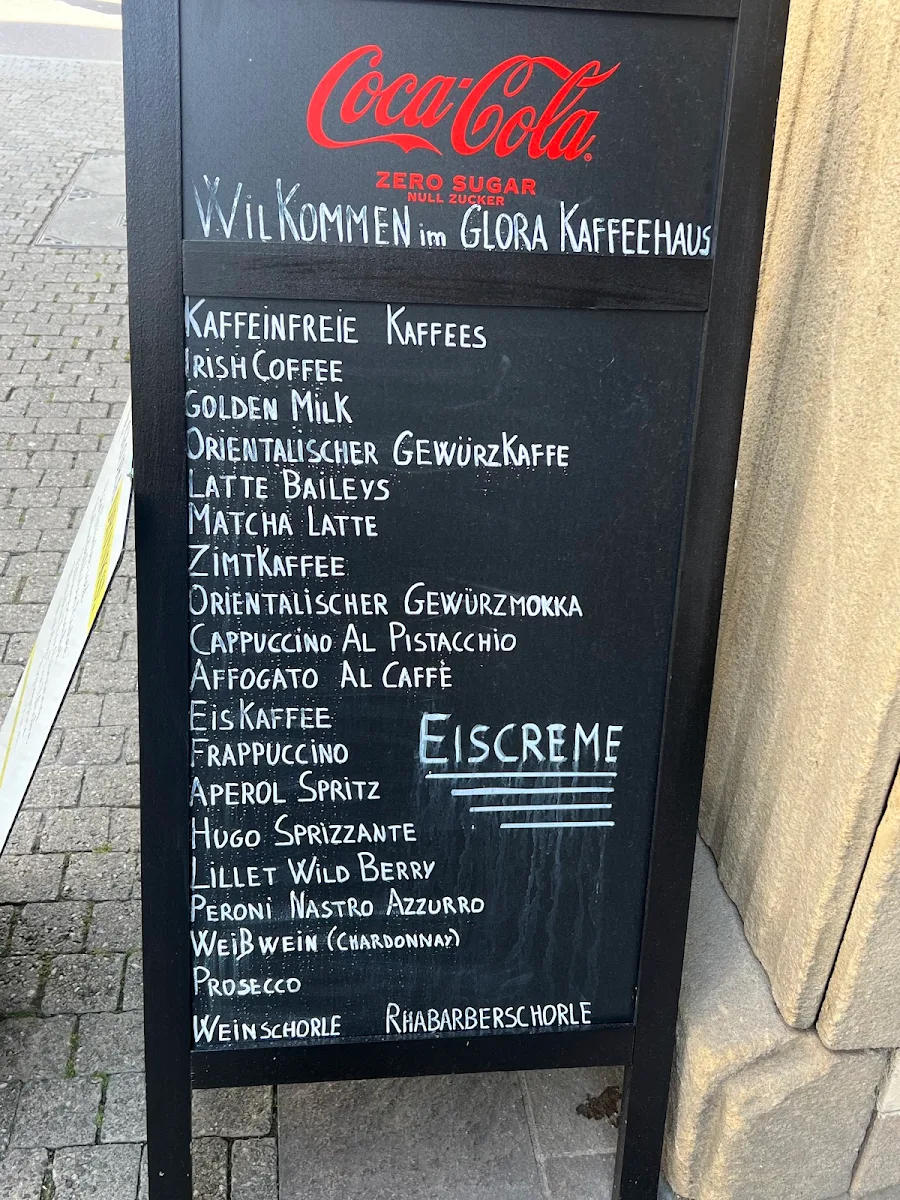 Coca-Cola
ZERO SUGAR
NULL ZUCKER
WILKOMMEN im GLORA KAFFEEHAUS
KAFFEINFREIE KAFFEES
IRISH COFFEE
GOLDEN MILK
ORIENTALISCHER GEWÜRZKAFFE
LATTE BAILEYS
MATCHA LATTE
ZIMTKAFFEE
ORIENTALISCHER GEWÜRZMOKKA
CAPPUCCINO AL PISTACCHIO
AFFOGATO AL CAFFÈ
EISKAFFEE
FRAPPUCCINO
EISCREME
APEROL SPRITZ
HUGO SPRIZZANTE
LILLET WILD BERRY
PERONI NASTRO AZZURRO
WEIßWEIN (CHARDONNAY)
PROSECCO
WEINSCHORLE RHABARBERSCHORLE